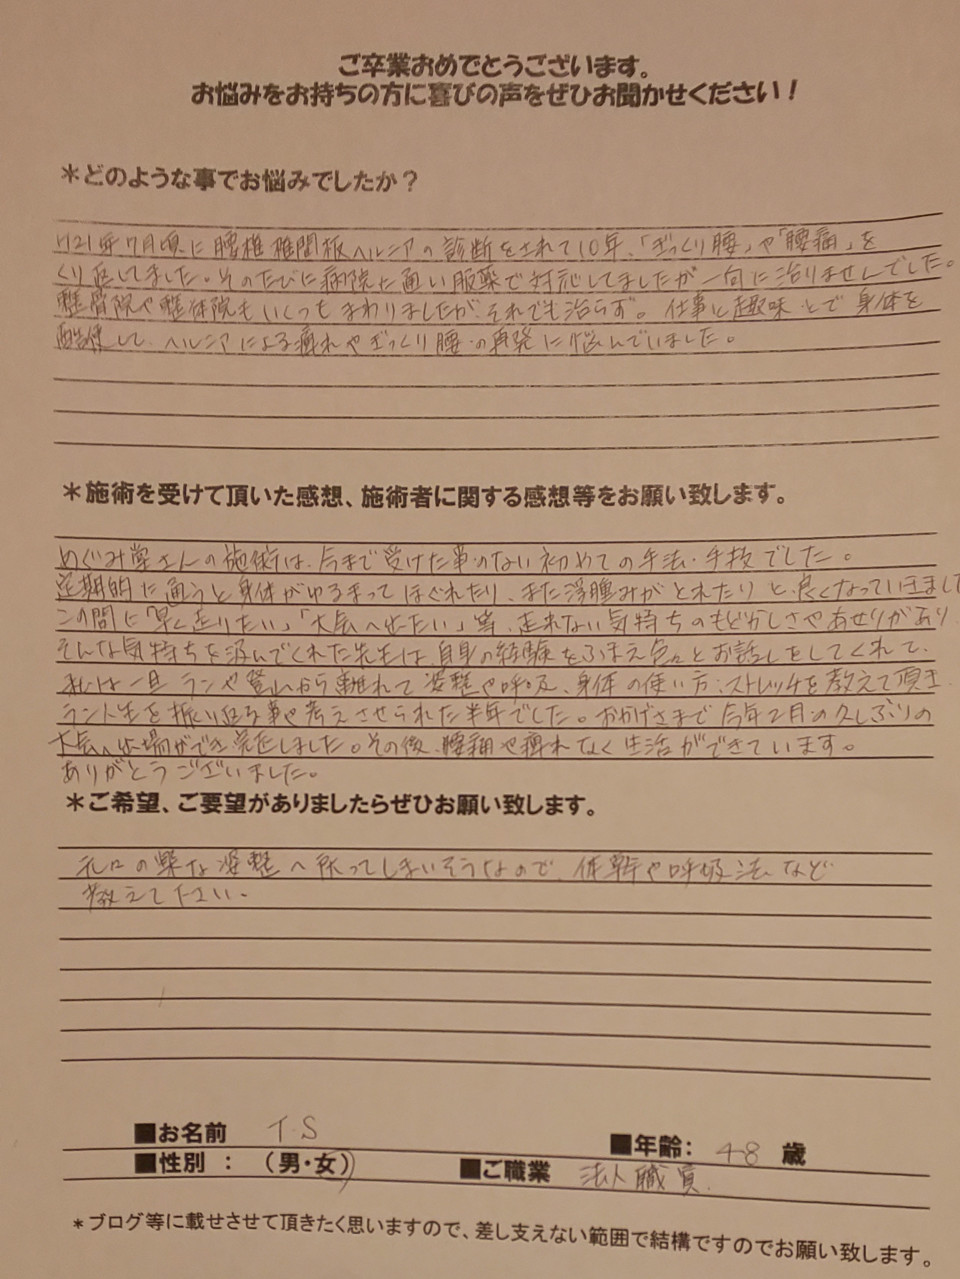 ご卒業おめでとうございます。
お悩みをお持ちの方に喜びの声をぜひお聞かせください！
＊どのような事でお悩みでしたか？
21年7月頃に腰椎椎間板ヘルニアの診断をされて10年、「ぎっくり腰」や「腰痛」を
くり返してました。そのたびに病院に通い服薬で対応してましたが一向に治りませんでした。
整骨院や整体院もいくつもまわりましたが、それでも治らず。仕事と趣味とで身体を
酷使して、ヘルニアによる痺れやぎっくり腰の再発に悩んでいました。
＊施術を受けて頂いた感想、施術者に関する感想等をお願い致します。
めぐみ堂さんの施術は、今まで受けた事のない初めての手法・手技でした。
定期的に通うと身体がゆるまってほぐれたり、また浮腫みがとれたりと、良くなっていきまし
この間に「早く走りたい」「大会へ出たい」等、走れない気持ちのもどかしさやあせりがあり
そんな気持ちを汲んでくれた先生は、自身の経験をふまえ色々とお話しをしてくれて、
私は一旦ランや登山から離れて姿整や呼吸、身体の使い方、ストレッチを教えて頂き
ラン人生を振り返る事や考えさせられた半年でした。おかげさまで今年2月の久しぶりの
大会へ出場ができ完走しました。その後、腰痛や痺れなく生活ができています。
ありがとうございました。
＊ご希望、ご要望がありましたらぜひお願い致します。
元々の楽な姿整へ戻ってしまいそうなので、体幹や呼吸法など
教えて下さい。
■お名前 T.S
■年齢： 48 歳
■性別 ：（男・女）
■ご職業 法人職員
＊ブログ等に載せさせて頂きたく思いますので、差し支えない範囲で結構ですのでお願い致します。